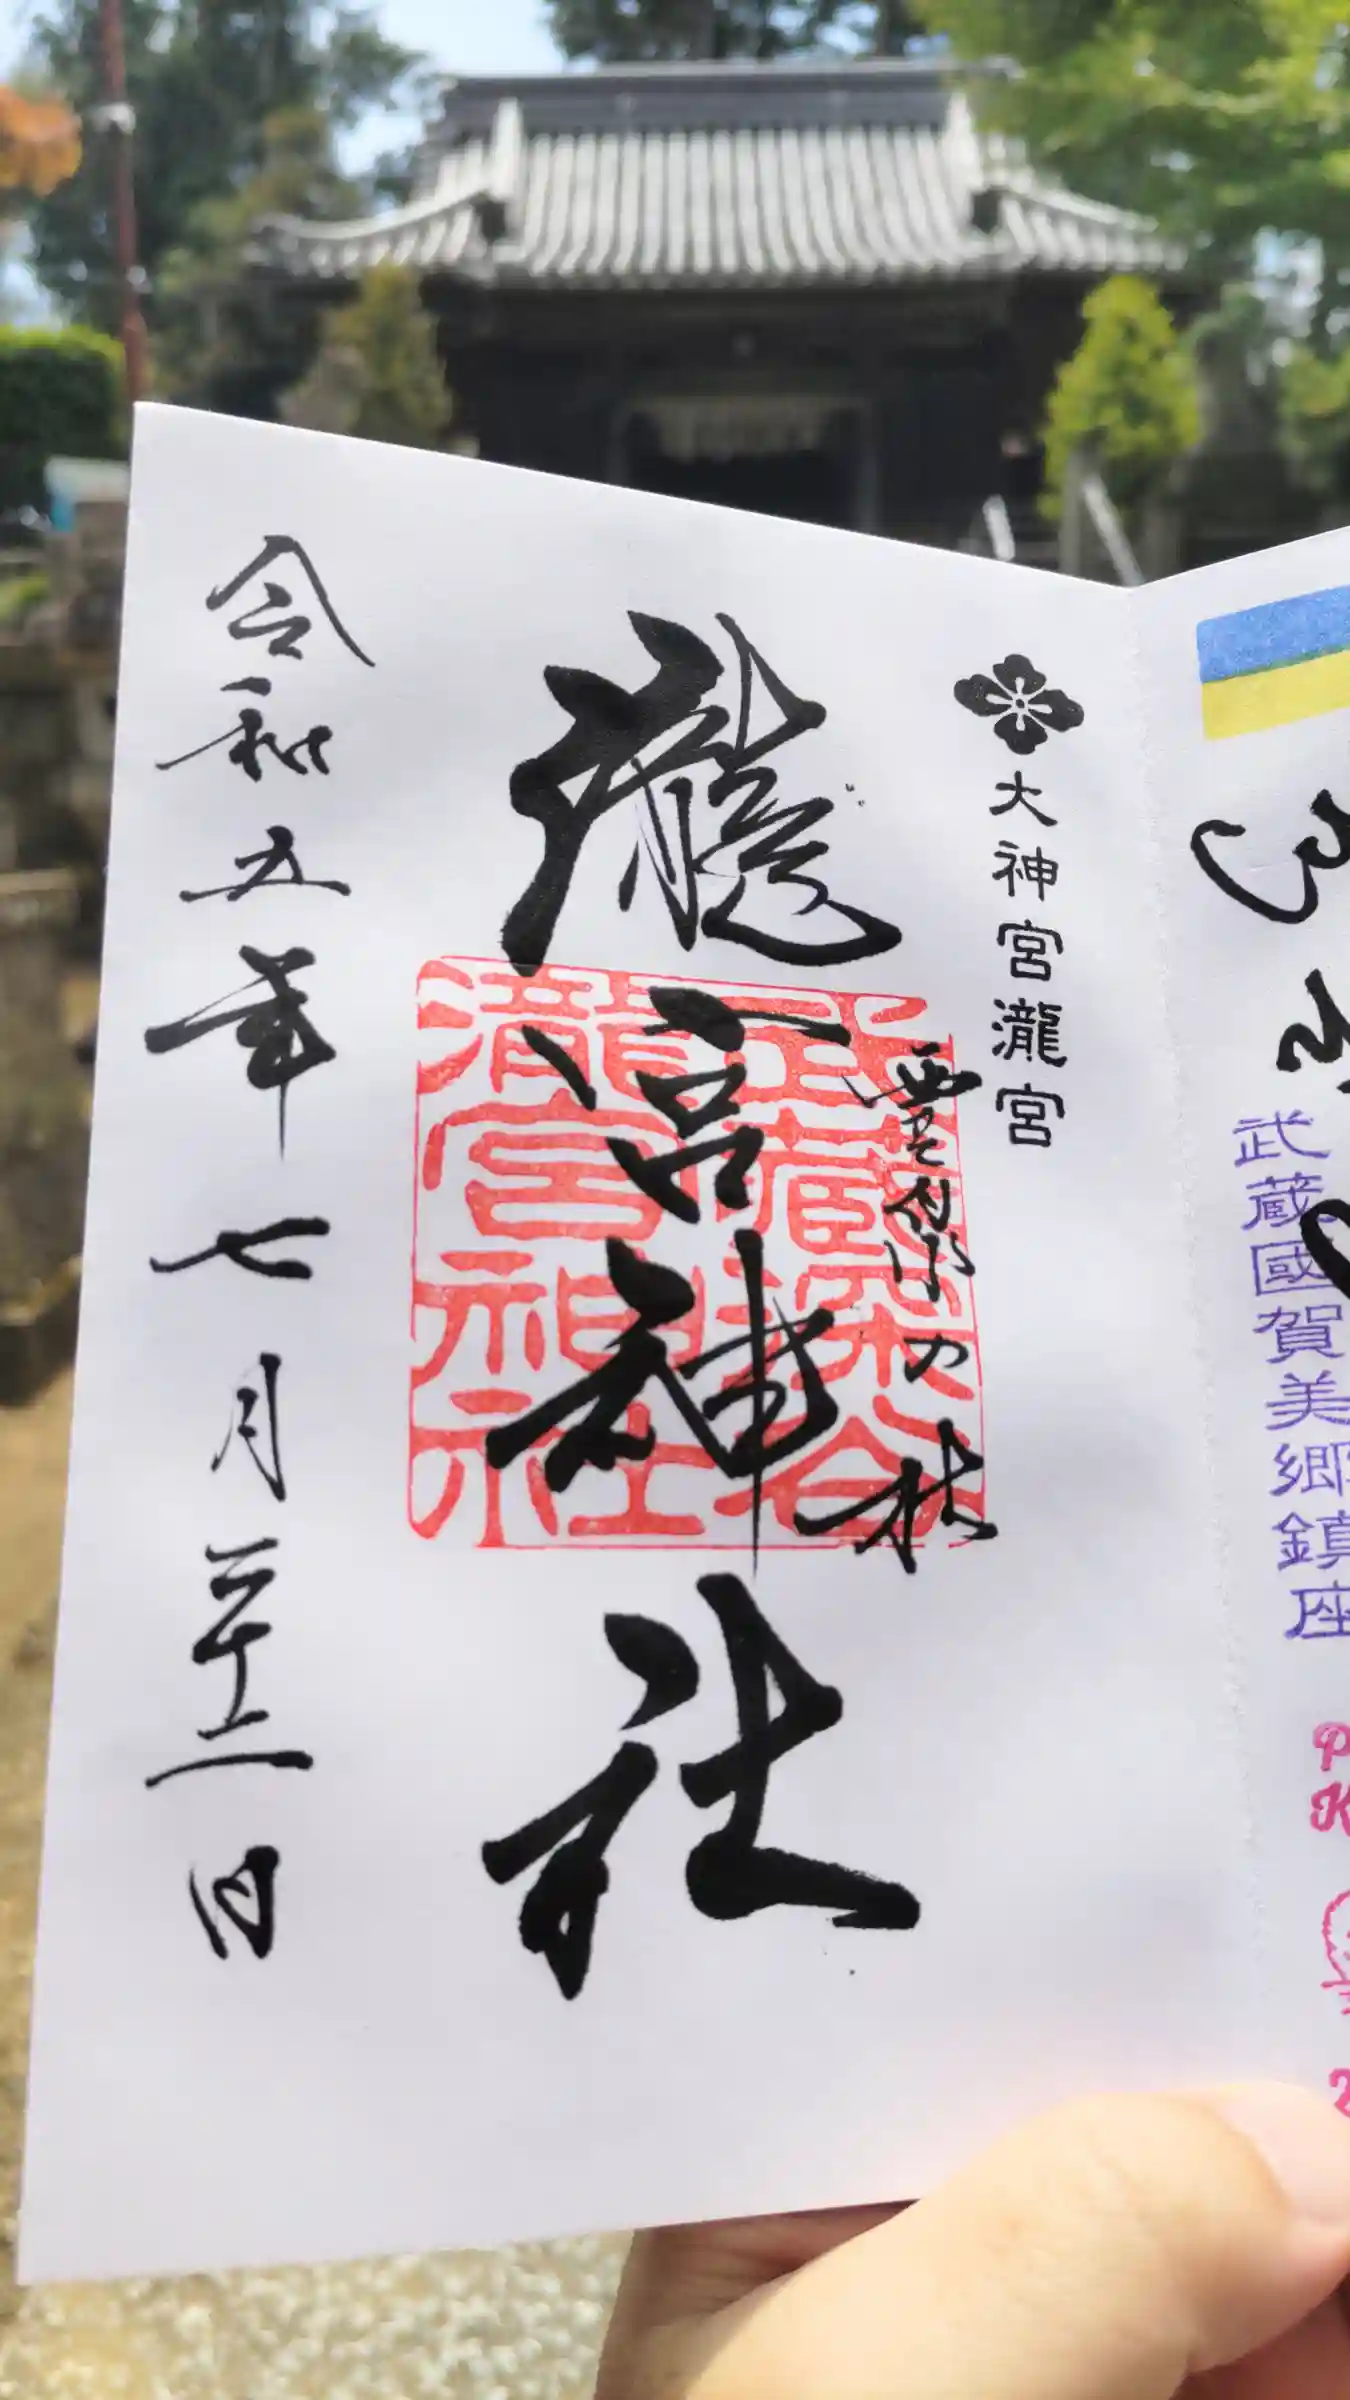 武蔵國賀美郷鎮座
大神宮瀧宮
瀧宮神社
武蔵深谷
瀧宮神社
令和五年七月二十二日